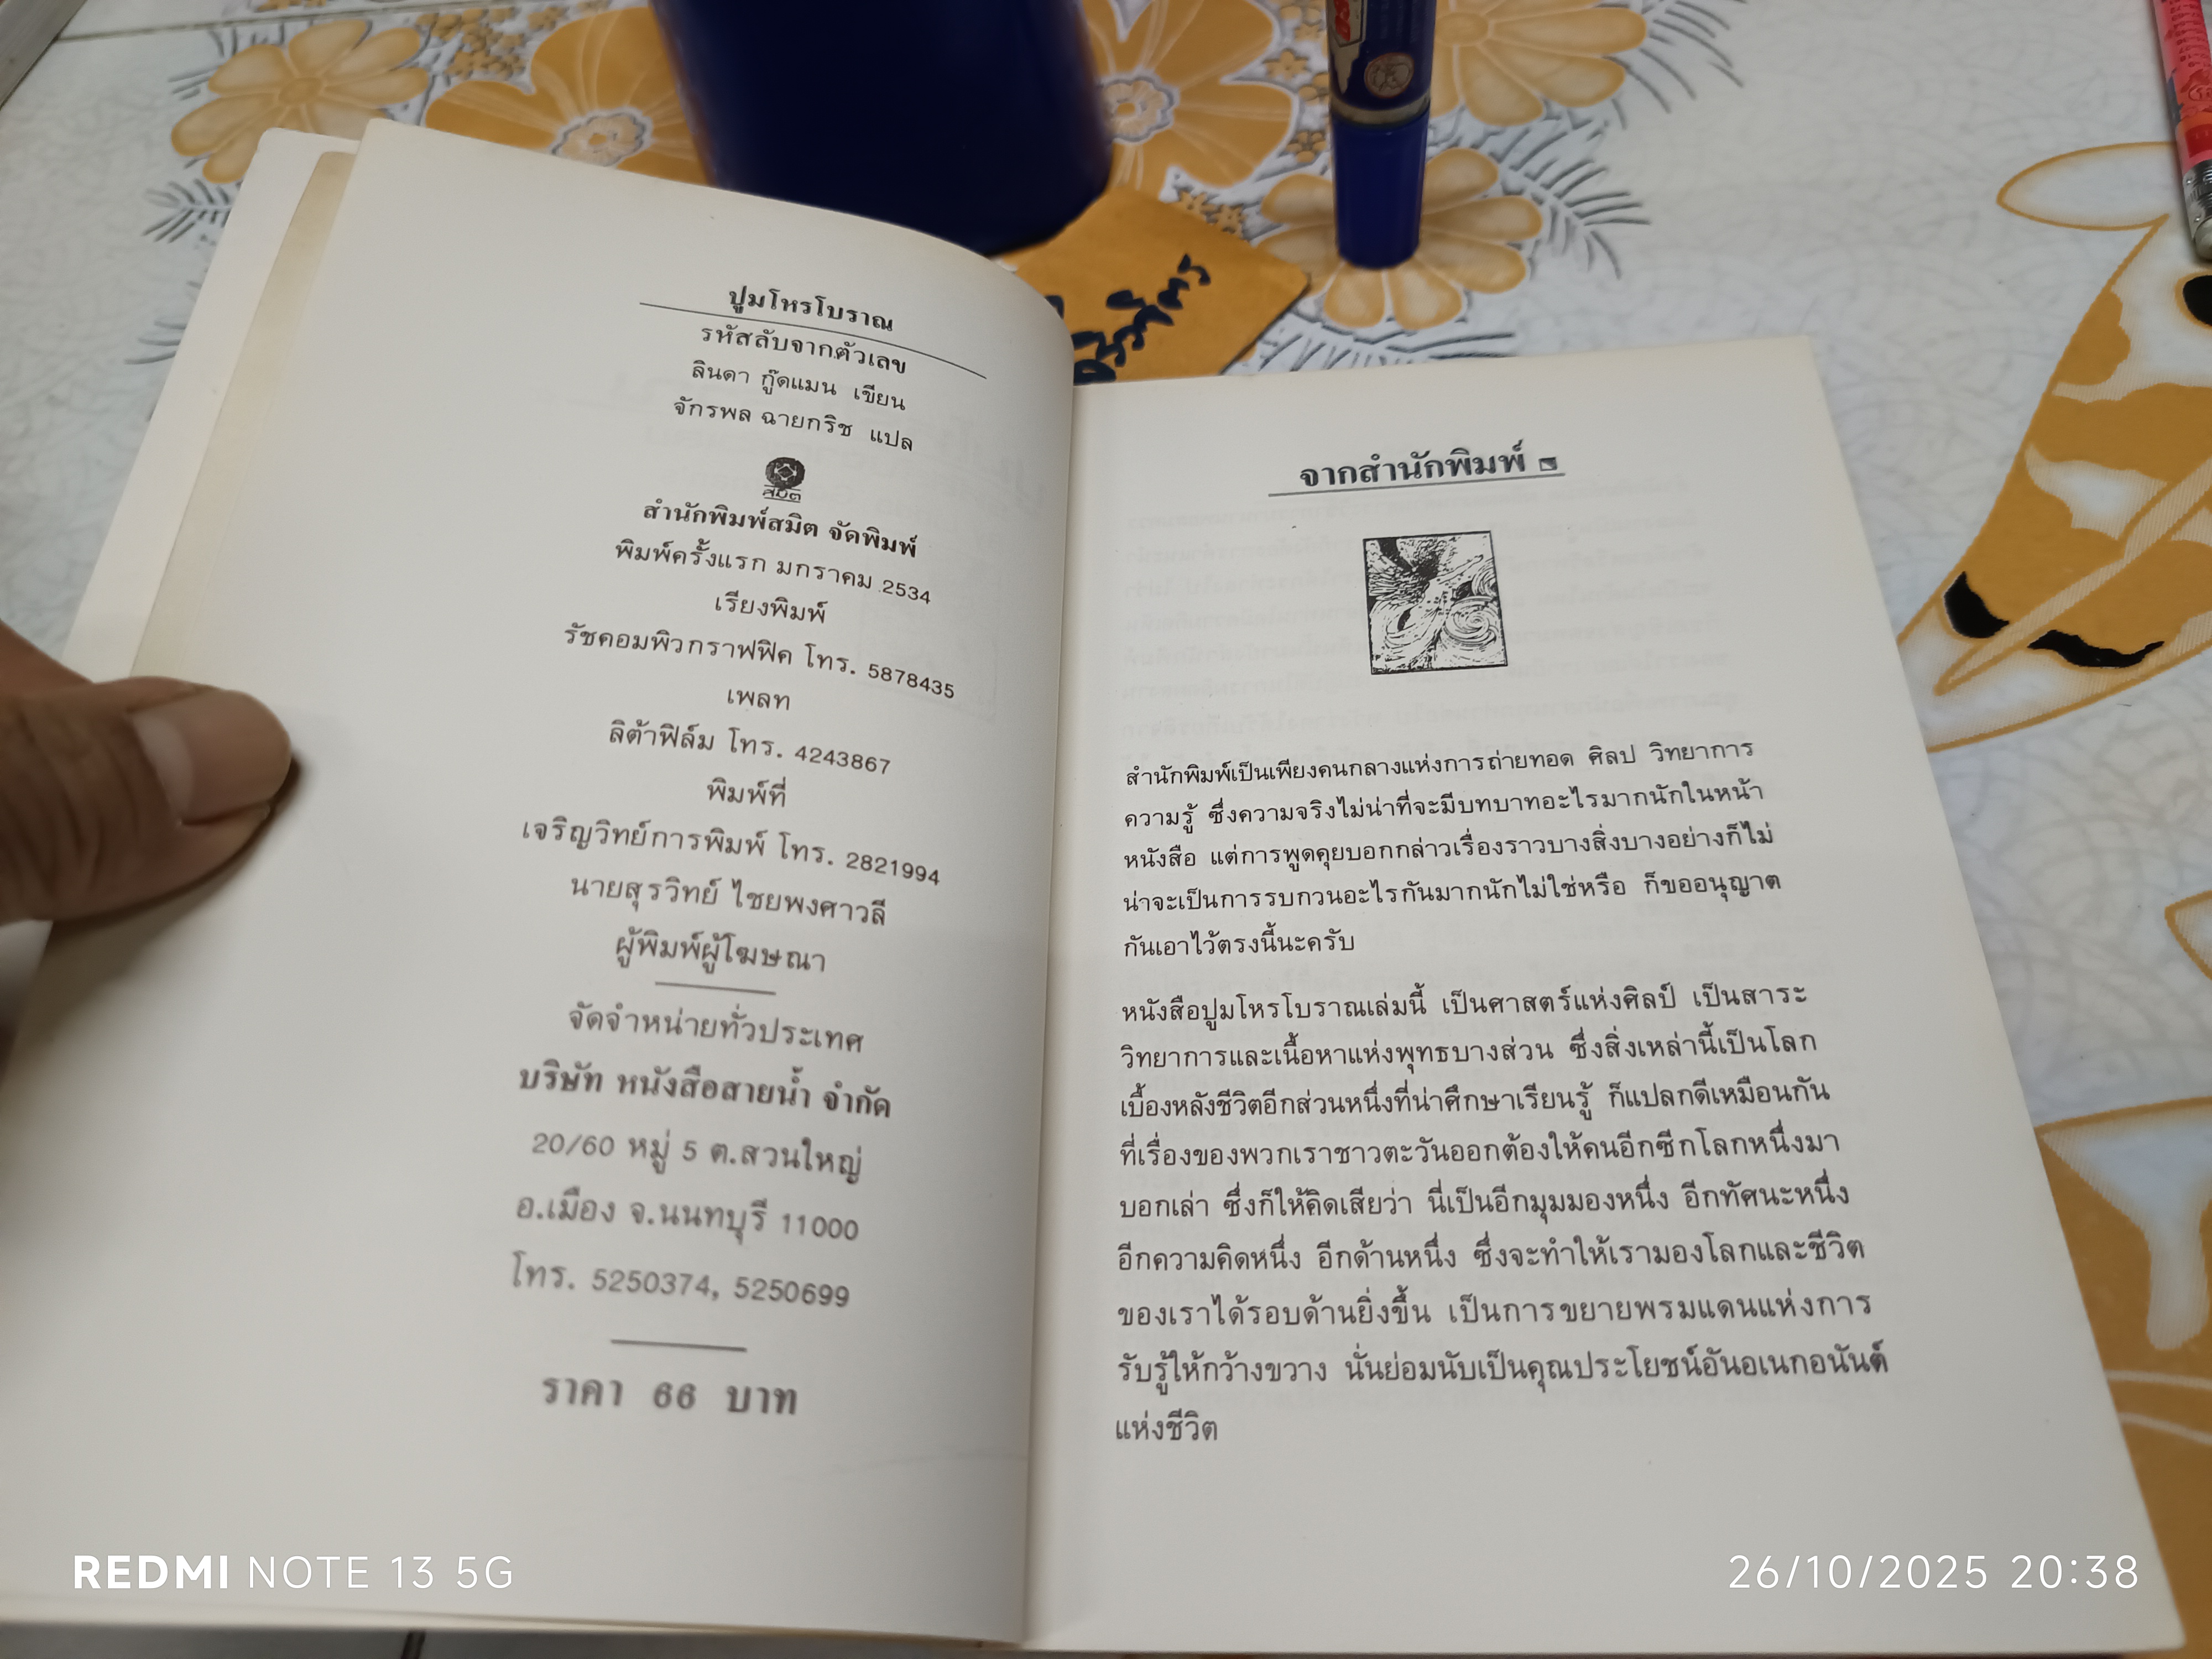 ปูมโหรโบราณ
รหัสลับจากตัวเลข
ลินดา กู๊ดแมน เขียน
จักรพล ฉายกริช แปล
สมิต
สำนักพิมพ์สมิต จัดพิมพ์
พิมพ์ครั้งแรก มกราคม 2534
เรียงพิมพ์
รัชคอมพิวกราฟฟิค โทร. 5878435
เพลท
ลิต้าฟิล์ม โทร. 4243867
พิมพ์ที่
เจริญวิทย์การพิมพ์ โทร. 2821994
นายสุรวิทย์ ไชยพงศาวลี
ผู้พิมพ์ผู้โฆษณา
จัดจำหน่ายทั่วประเทศ
บริษัท หนังสือสายน้ำ จำกัด
20/60 หมู่ 5 ต.สวนใหญ่
อ.เมือง จ.นนทบุรี 11000
โทร. 5250374, 5250699
ราคา 66 บาท
จากสำนักพิมพ์
สำนักพิมพ์เป็นเพียงคนกลางแห่งการถ่ายทอด ศิลป วิทยาการ
ความรู้ ซึ่งความจริงไม่น่าที่จะมีบทบาทอะไรมากนักในหน้า
หนังสือ แต่การพูดคุยบอกกล่าวเรื่องราวบางสิ่งบางอย่างก็ไม่
น่าจะเป็นการรบกวนอะไรกันมากนักไม่ใช่หรือ ก็ขออนุญาต
กันเอาไว้ตรงนี้นะครับ
หนังสือปูมโหรโบราณเล่มนี้ เป็นศาสตร์แห่งศิลป์ เป็นสาระ
วิทยาการและเนื้อหาแห่งพุทธบางส่วน ซึ่งสิ่งเหล่านี้เป็นโลก
เบื้องหลังชีวิตอีกส่วนหนึ่งที่น่าศึกษาเรียนรู้ ก็แปลกดีเหมือนกัน
ที่เรื่องของพวกเราชาวตะวันออกต้องให้คนอีกซีกโลกหนึ่งมา
บอกเล่า ซึ่งก็ให้คิดเสียว่า นี่เป็นอีกมุมมองหนึ่ง อีกทัศนะหนึ่ง
อีกความคิดหนึ่ง อีกด้านหนึ่ง ซึ่งจะทำให้เรามองโลกและชีวิต
ของเราได้รอบด้านยิ่งขึ้น เป็นการขยายพรมแดนแห่งการ
รับรู้ให้กว้างขวาง นั่นย่อมนับเป็นคุณประโยชน์อันอเนกอนันต์
แห่งชีวิต
REDMI NOTE 13 5G
26/10/2025 20:38